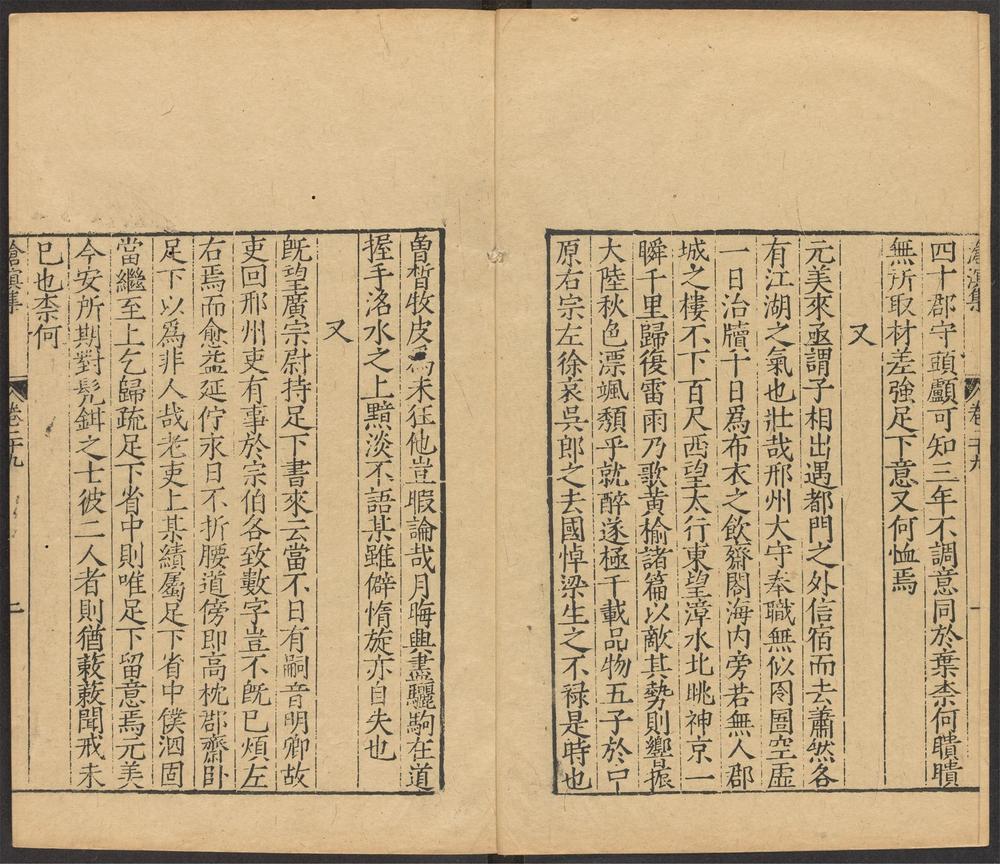 滄溟集
卷二十九
一
四十郡守頭顱可知三年不調意同於棄柰何瞶瞶
無所取材差強足下意又何恤焉
又
元美來亟謂子相出遇都門之外信宿而去蕭然各
有江湖之氣也壯哉邢州大守奉職無似囹圄空虛
一日治牘十日為布衣之飲齋閣海內旁若無人郡
城之樓不下百尺西望太行東望漳水北眺神京一
瞬千里歸復雷雨乃歌黃榆諸篇以敵其勢則響振
大陸秋色漂颯頹乎就醉遂極千載品物五子於中
原右宗左徐哀吳郎之去國悼梁生之不祿是時也
魯晳牧皮為未狂他豈暇論哉月晦興盡驪駒在道
握手洛水之上黯淡不語某雖僻惰旋亦自失也
又
旣望廣宗尉持足下書來云當不日有嗣音明卿故
吏回邢州吏有事於宗伯各致數字豈不旣已煩左
右焉而愈益延佇永日不折腰道傍即高枕郡齋臥
足下以爲非人哉老吏上某績屬足下省中僕泗固
當繼至上乞歸疏足下省中則唯足下留意焉元美
今安所期對髠鉗之士彼二人者則猶蔌蔌聞戒未
巳也柰何
滄溟集
卷二十九
二